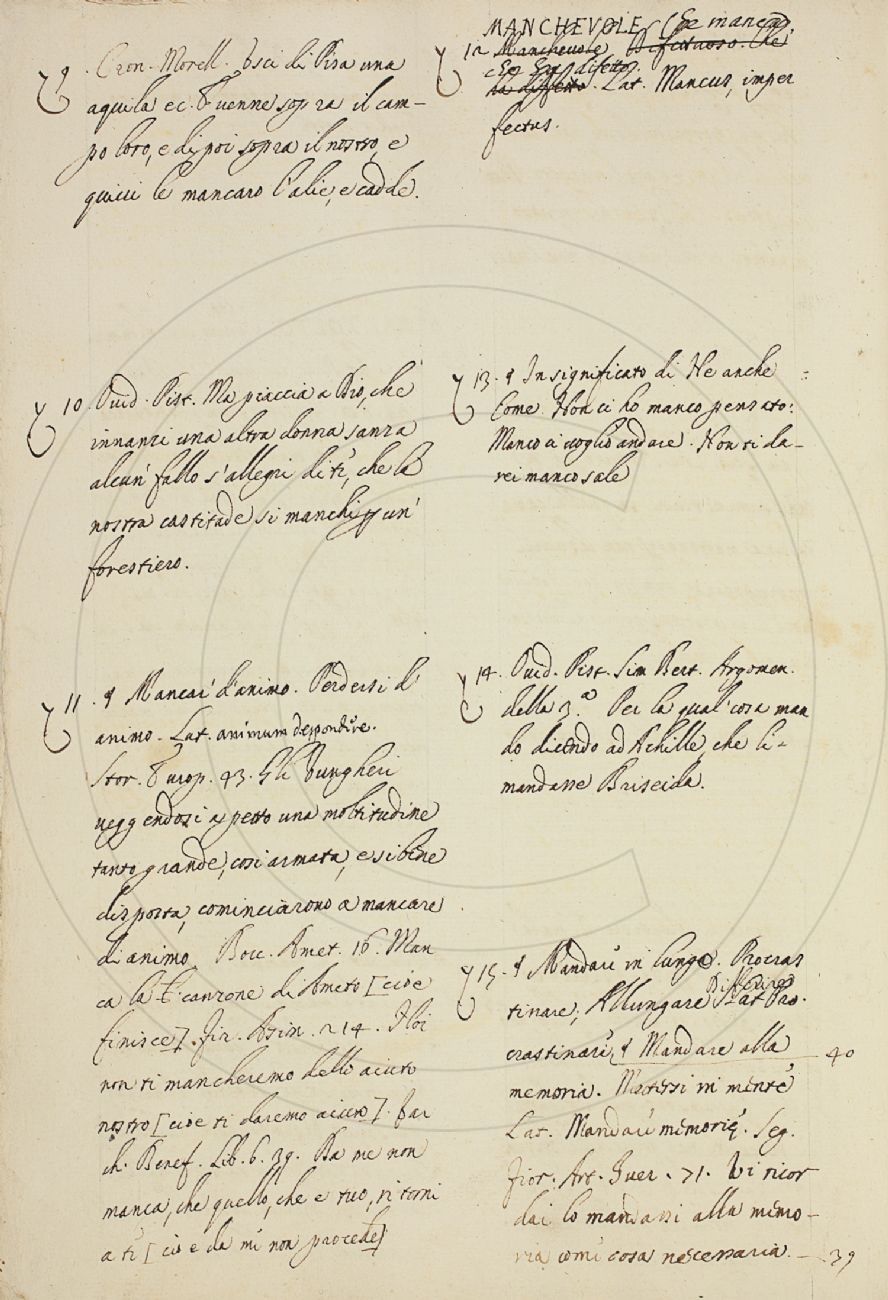 9. Cron. Morell. Uscì di Pisa una
aquila ec. E venne sopra il cam-
po loro, e di poi sopra il nostro, e
quivi le mancaro l'alie, e cadde.
10 Ovid. Pist. Ma piaccia a Dio, che
innanzi una altra donna sanza
alcun' fallo s'allegri di te, che la
nostra castitade si manchi p un'
forestiero.
11. § Mancar' d'animo. Perdersi d'
animo. Lat. animum despondere.
Stor. Europ. 43. Gli Vungheri
veggendosi a petto una moltitudine
tanto grande, così armata, e sì bene
disposta, cominciarono a mancare
di animo. Bocc. Amet. 16. Man
ca la canzone di Ameto [cioè
finisce]. Fir. Asin. 214. Noi
non ti mancheremo dello aiuto
nostro [cioè ti daremo aiuto]. Var
ch. Benef. Lib. 6. 39. Da me non
manca, che quello, che è tuo, ritorni
a te [cioè da me non procede]
MANCHEVOLE Che manca
12 Manchevole Difettuoso. Che
difetto. Lat. Mancus, imper
fectus.
13. § In significato di Ne anche
Come Non ci ho manco pensato:
Manco ci voglio andare. Non ti da-
rei manco sale
14. Ovid. Pist. Sim Bert. Argomen.
della 3.a Per la qual cosa man
do dicendo ad Achille, che li-
mandasse Briseida.
15. § Mandare in lungo. Procras
tinare, Allungare Differire Lat. Pro.
crastinare, § Mandare alla 40
memoria. Mettersi in mente
Lat. Mandare memorię. Seg.
Fior. Art. Guer. 71. Vi ricor
dai lo mandassi alla memo-
ria come cosa necessaria. 39